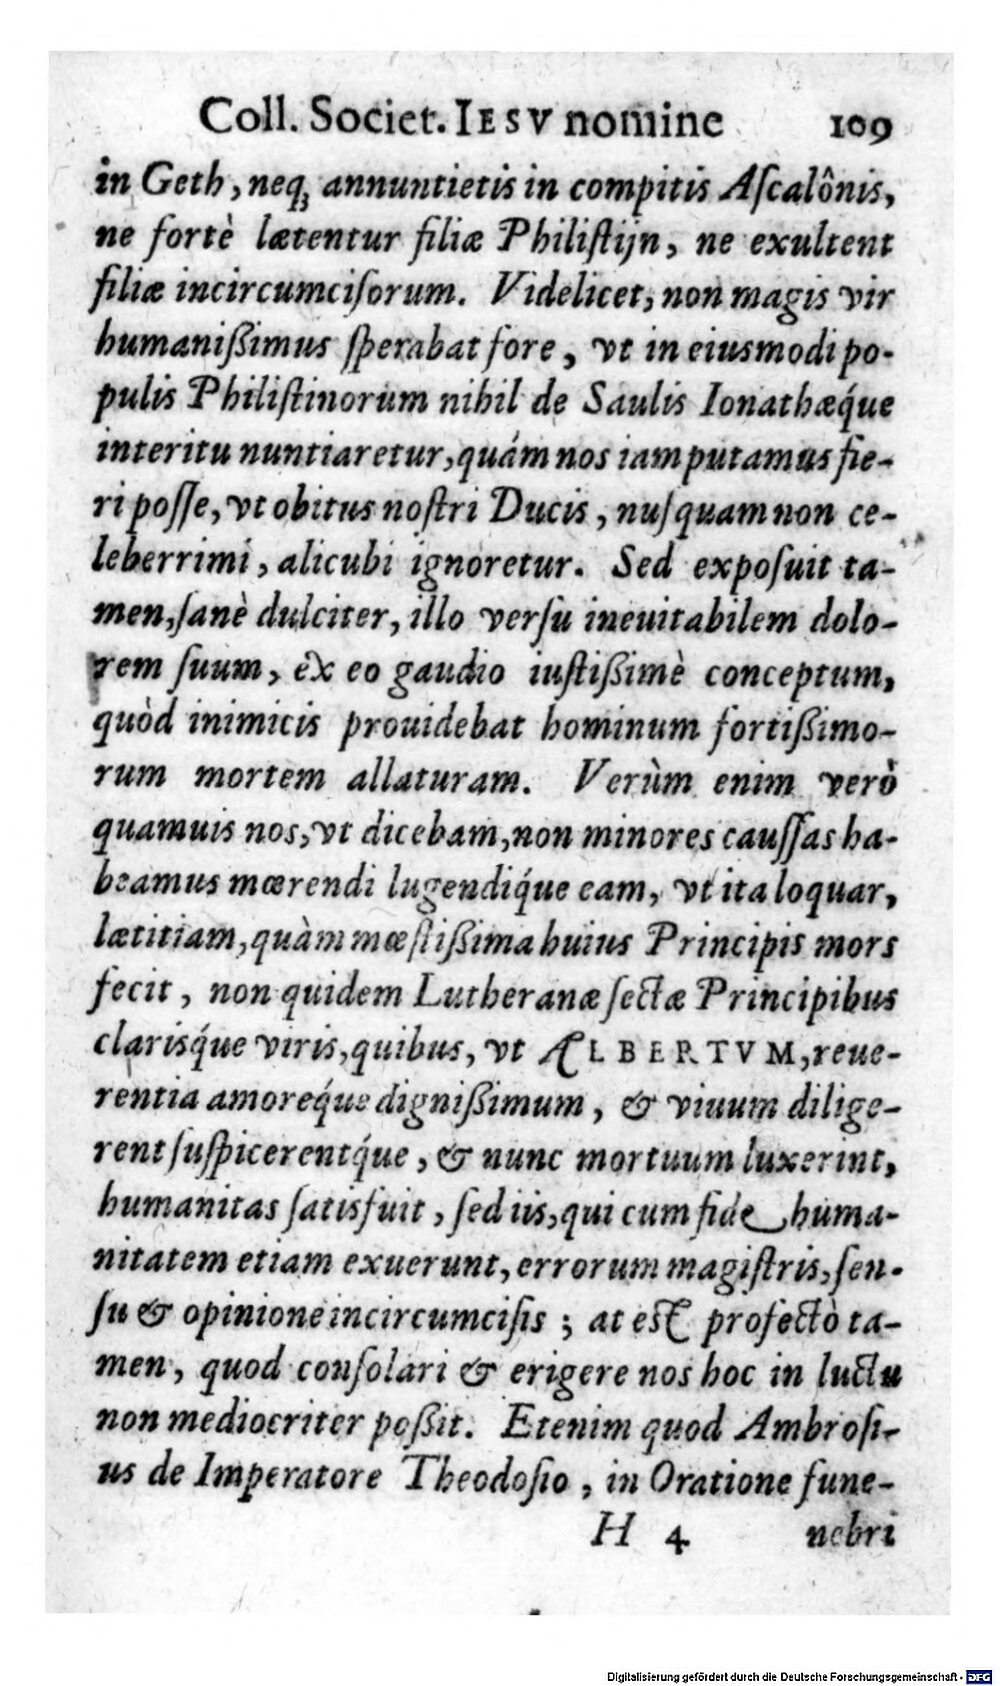 Coll. Societ. IESV nomine 109
in Geth, neq́ꝫ annuntietis in compitis Aſcalônis,
ne fortè lætentur filiæ Philiſtijn, ne exultent
filiæ incircumciſorum. Videlicet, non magis vir
humanißimus ſperabat fore, vt in eiusmodi po-
pulis Philiſtinorum nihil de Saulis Ionathæq́ue
interitu nuntiaretur, quám nos iam putamus fie-
ri poſſe, vt obitus noſtri Ducis, nuſquam non ce-
leberrimi, alicubi ignoretur. Sed expoſuit ta-
men, ſanè dulciter, illo verſu ineuitabilem dolo-
rem ſuum, ex eo gaudio iuſtißimè conceptum,
quòd inimicis prouidebat hominum fortißimo-
rum mortem allaturam. Verùm enim verò
quamuis nos, vt dicebam, non minores cauſſas ha-
beamus mœrendi lugendiq́ue eam, vt ita loquar,
lætitiam, quàm mœſtißima huius Principis mors
fecit, non quidem Lutheranæ ſectæ Principibus
clarisq́ue viris, quibus, vt ALBERTVM, reue-
rentia amoreq́ue dignißimum, & viuum dilige-
rent ſuſpicerentq́ue, & nunc mortuum luxerint,
humanitas ſatis fuit, ſed iis, qui cum fide huma-
nitatem etiam exuerunt, errorum magiſtris, ſen-
ſu & opinione incircumciſis ; at eſt profectò ta-
men, quod conſolari & erigere nos hoc in luctu
non mediocriter poßit. Etenim quod Ambroſi-
us de Imperatore Theodoſio, in Oratione fune-
H 4 nebri
Digitalisierung gefördert durch die Deutsche Forschungsgemeinschaft - DFG